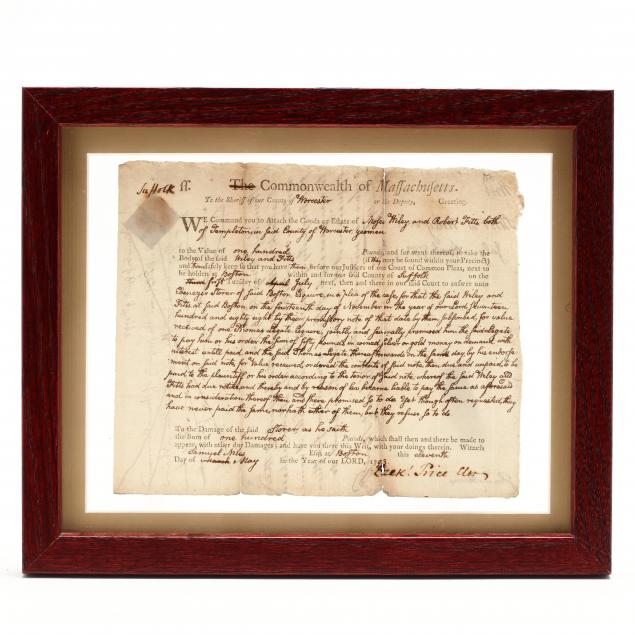 Suffolk ss. The Commonwealth of Massachusetts.
To the Sheriff of our County of Worcester or his Deputy, Greeting.
WE Command you to Attach the Goods or Estate of Moses Wiley and Robert Fitts both
of Templeton, in said County of Worcester yeomen
to the Value of one hundred Pounds, and for want thereof, to take the
Bodys of the said Wiley and Fitts (if they may be found within your Precinct)
and them safely keep so that you have them before our Justices of our Court of Common Pleas, next to
be holden at Boston within and for our said County of Suffolk on the
first Tuesday of April July next, then and there in our said Court to answer unto
Ebenezer Storer of said Boston Esquire, in a plea of the case for that the said Wiley and
Fitts at said Boston, on the fourteenth day of November in the year of our Lord seventeen
hundred and eighty eight by their promissory note of that date by them subscribed for value
received of one Thomas Legate Esquire, jointly and severally promised him the said Legate
to pay him or his order the sum of fifty pounds in coined silver or gold money on demand with
interest until paid and the said Thomas Legate thereafterwards on the same day by his endorse
ment on said note for value received ordered the contents of said note then due and unpaid to be
paid to the plaintiff or his order according to the tenor of said note whereof the said Wiley and
Fitts had due notice and thereby and by reason of law became liable to pay the same as aforesaid
and in consideration thereof then and there promised so to do Yet though often requested, they
have never paid the same nor hath either of them, but they refuse so to do
To the Damage of the said Storer as he saith
the Sum of one hundred Pounds, which shall then and there be made to
appear, with other due Damages: and have you there this Writ, with your doings therein. Witness
Samuel Niles Esq; at Boston this eleventh
Day of March May In the Year of our LORD,
Ezek! Price Cler